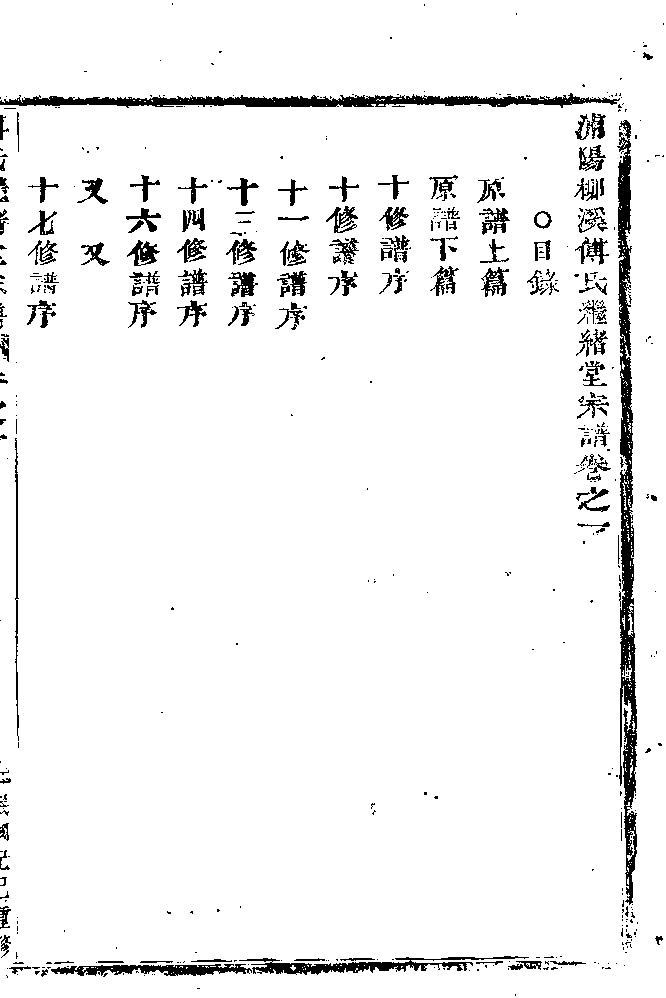 浦陽柳溪傅氏繼緒堂宗譜卷之一
○目錄
原譜上篇
原譜下篇
十修譜序
十修譜序
十一修譜序
十三修譜序
十四修譜序
十六修譜序
又 又
十七修譜序
民國己巳重修